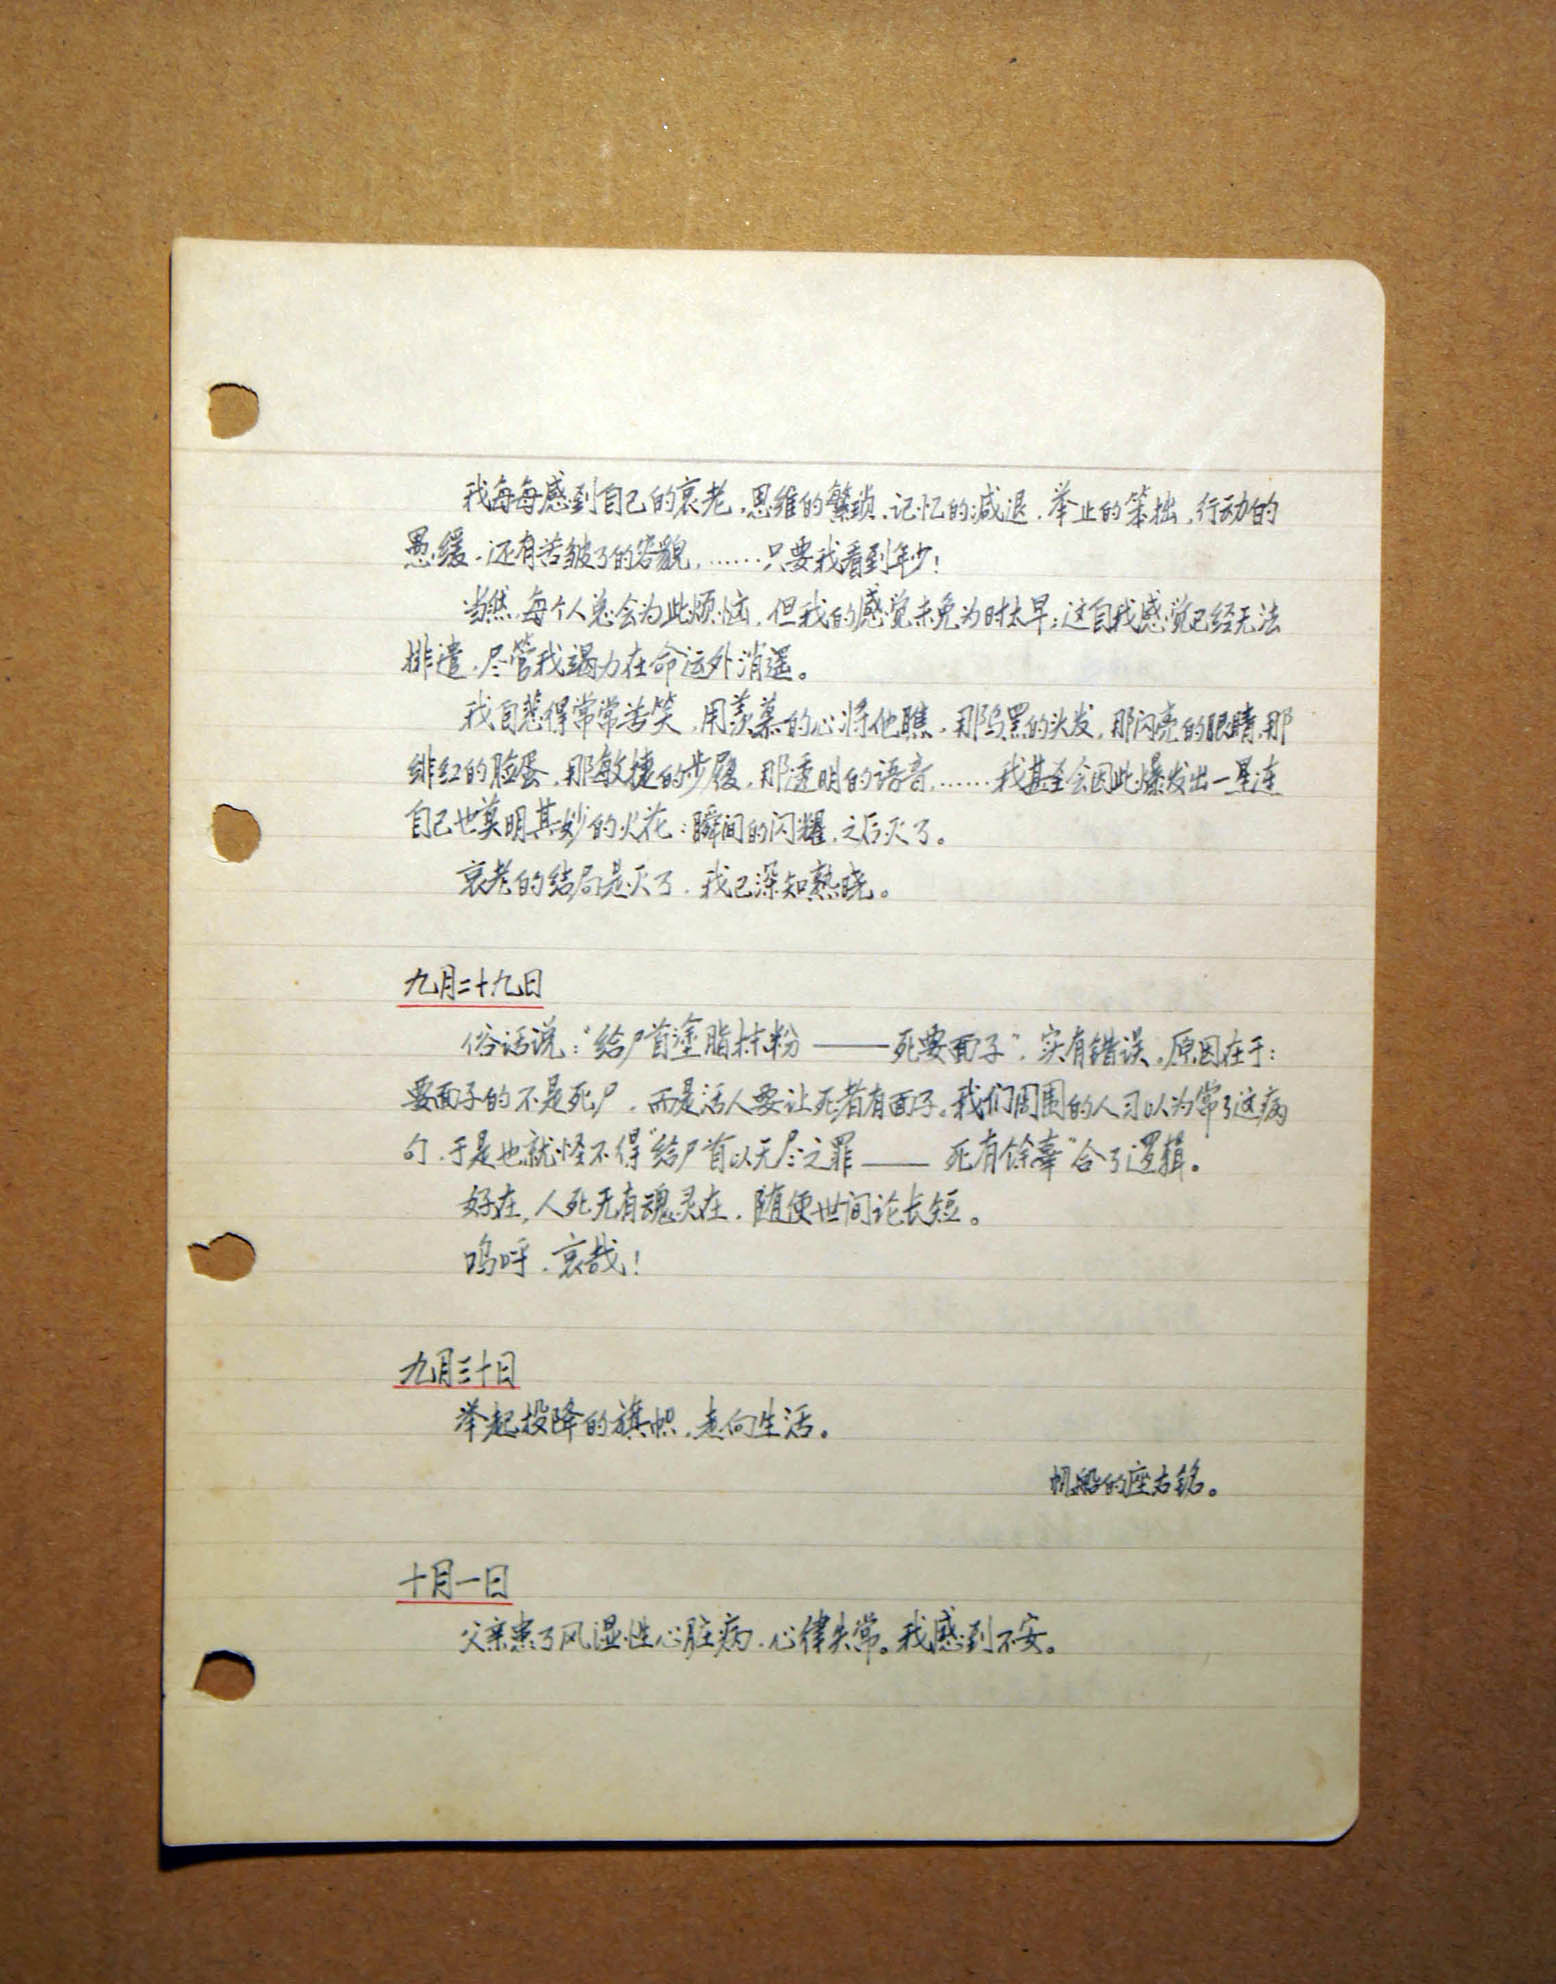 我每每感到自己的衰老，思维的繁琐、记忆的减退、举止的笨拙、行动的
愚缓、还有苦皱了的容貌，……只要我看到年少！
当然，每个人总会为此烦恼，但我的感觉未免为时太早；这自我感觉已经无法
排遣，尽管我竭力在命运外消遥。
我自悲得常常苦笑，用羡慕的心将他瞧，那乌黑的头发，那闪亮的眼睛，那
绯红的脸蛋，那敏捷的步履，那透明的语音，……我甚至会因此爆发出一星连
自己也莫明其妙的火花：瞬间的闪耀，之后灭了。
衰老的结局是灭了，我已深知熟晓。
九月二十九日
俗话说：“给尸首塗脂抹粉——死要面子”，实有错误，原因在于：
要面子的不是死尸，而是活人要让死者有面子。我们周围的人习以为常了这病
句，于是也就怪不得“给尸首以无尽之罪——死有馀辜”合了逻辑。
好在，人死无有魂灵在，随便世间论长短。
呜呼，哀哉！
九月三十日
举起投降的旗帜，走向生活。
帆船的座右铭。
十月一日
父亲患了风湿性心脏病，心律失常。我感到不安。